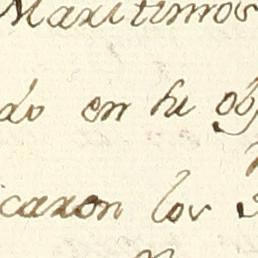 Maritimos
do en su obj
caron los